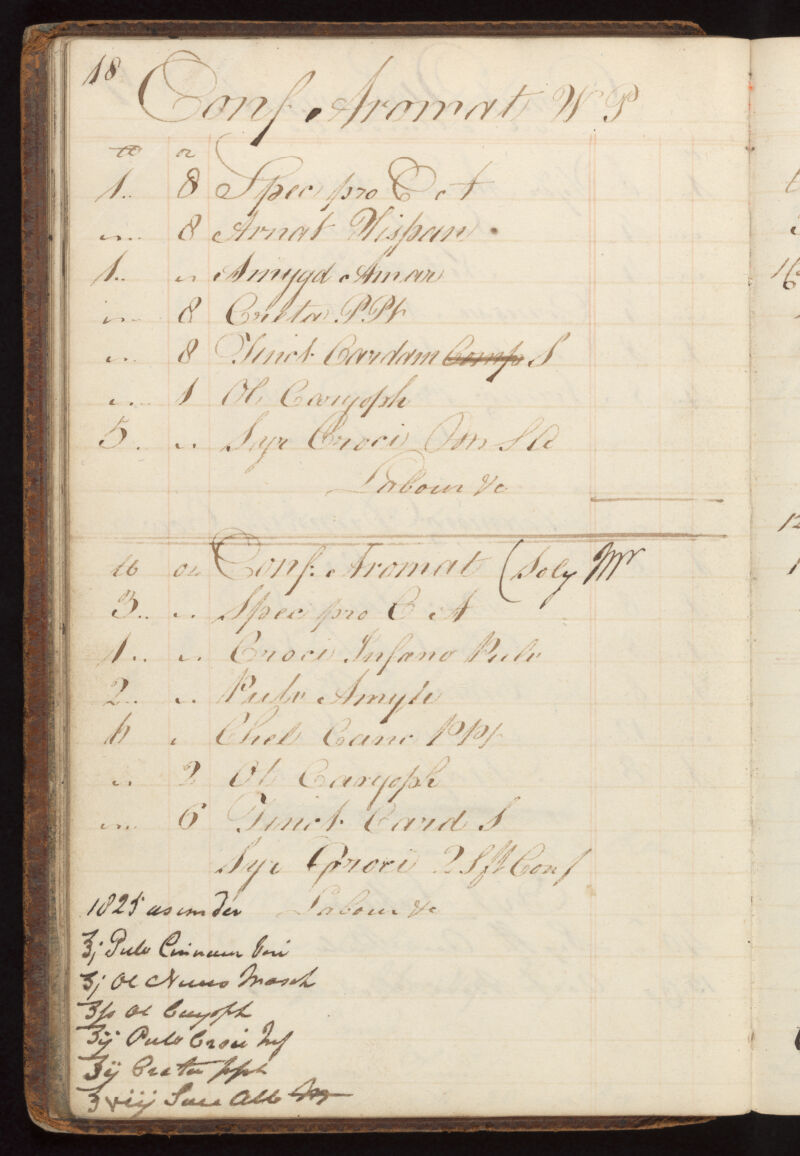 18
Conf. Aromat W P
lb oz
1.. 8 Spec pro C A
„ 8 Arnat Hispan.
1.. „ Amygd Amar
„ 8 Creta P.Pt
„ 8 Tinct Cardam Comp S
„ 1 Ol Caryoph
5. „ Syr Croci
Labour &c
lb oz Conf. Aromat (Soly Mr
3.. „ Spec pro C A
1.. „ Croci Pulv
2.. „ Pulv Amyli
6 „ Chel Canc P.Pt
„ 2 Ol Caryoph
„ 6 Tinct Card S
Syr Croci 2 Conf
1825 as under Labour &c
ʒj Pulv Cinnam Veri
ʒj Ol Nucis Mosch
ʒſs Ol Caryoph
ʒij Pulv Croci
ʒij Creta ppt
ʒviij Sacc Alb